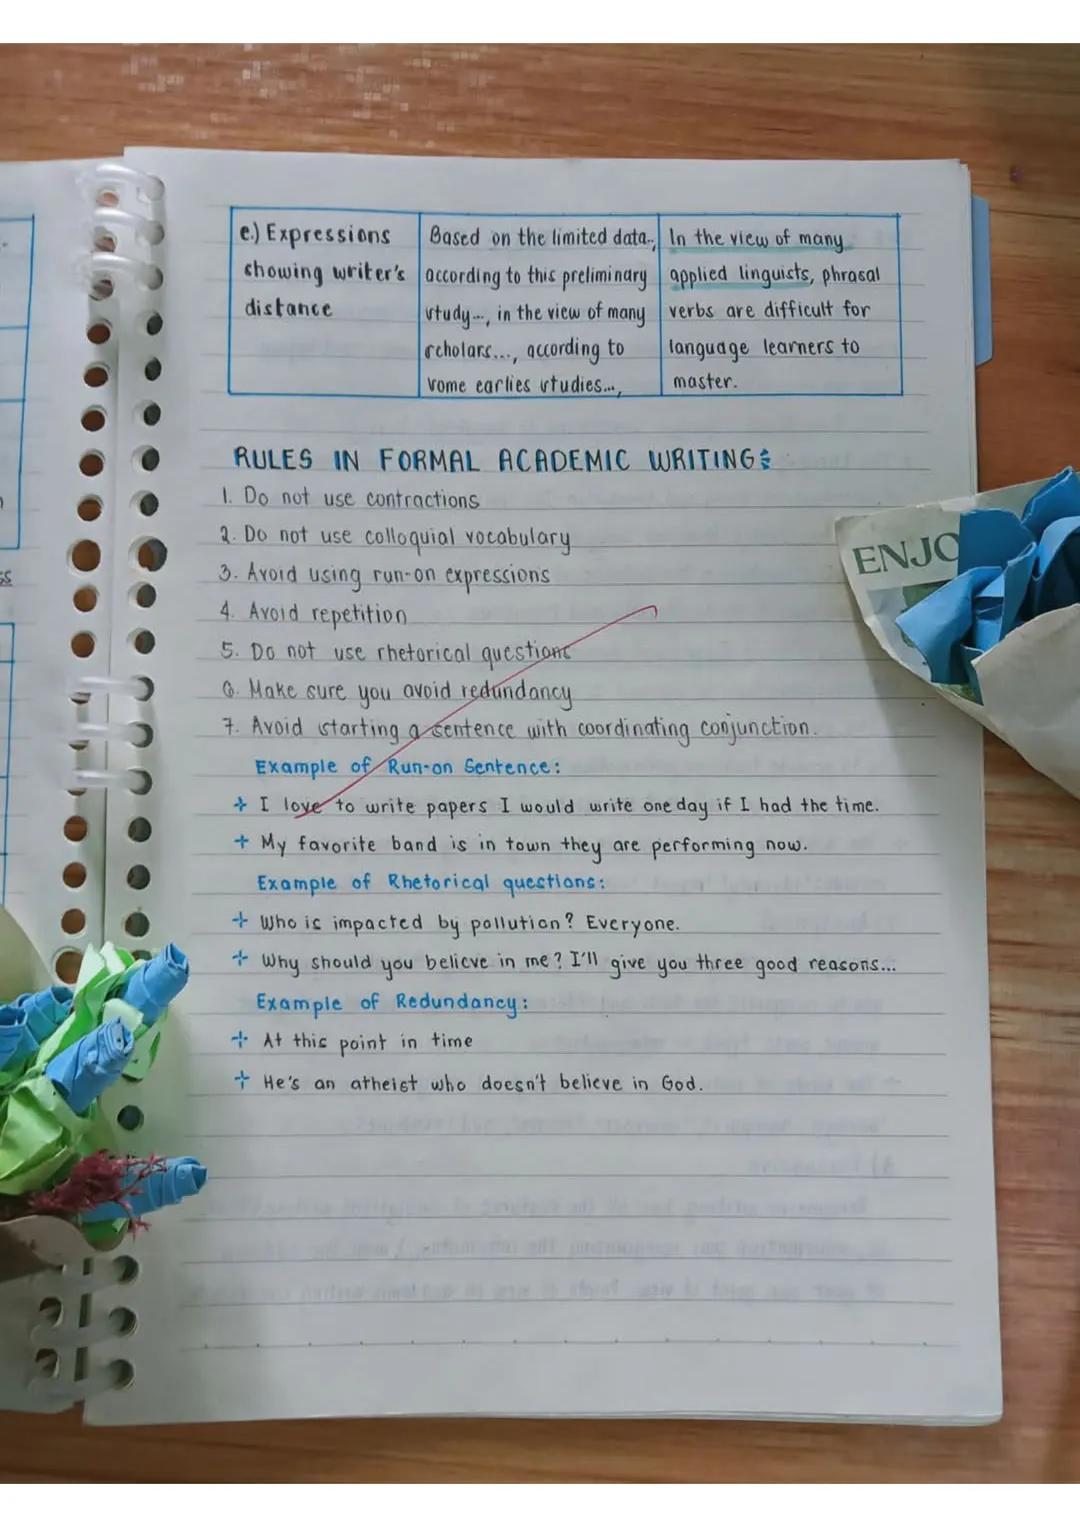 e.) Expressions
showing writer's
distance
Based on the limited data..,
according to this preliminary
study..., in the view of many
scholars..., according to
some earlies studies...,
In the view of many
applied linguists, phrasal
verbs are difficult for
language learners to
master.
RULES IN FORMAL ACADEMIC WRITING:
1. Do not use contractions
2. Do not use colloquial vocabulary
3. Avoid using run-on expressions
4. Avoid repetition
5. Do not use rhetorical questions
6. Make sure you avoid redundancy
7. Avoid starting a sentence with coordinating conjunction.
Example of Run-on Sentence:
+ I love to write papers I would write one day if I had the time.
+ My favorite band is in town they are performing now.
Example of Rhetorical questions:
+ Who is impacted by pollution? Everyone.
+ Why should you believe in me? I'll give you three good reasons...
Example of Redundancy:
+ At this point in time
+ He's an atheist who doesn't believe in God.
ENJO